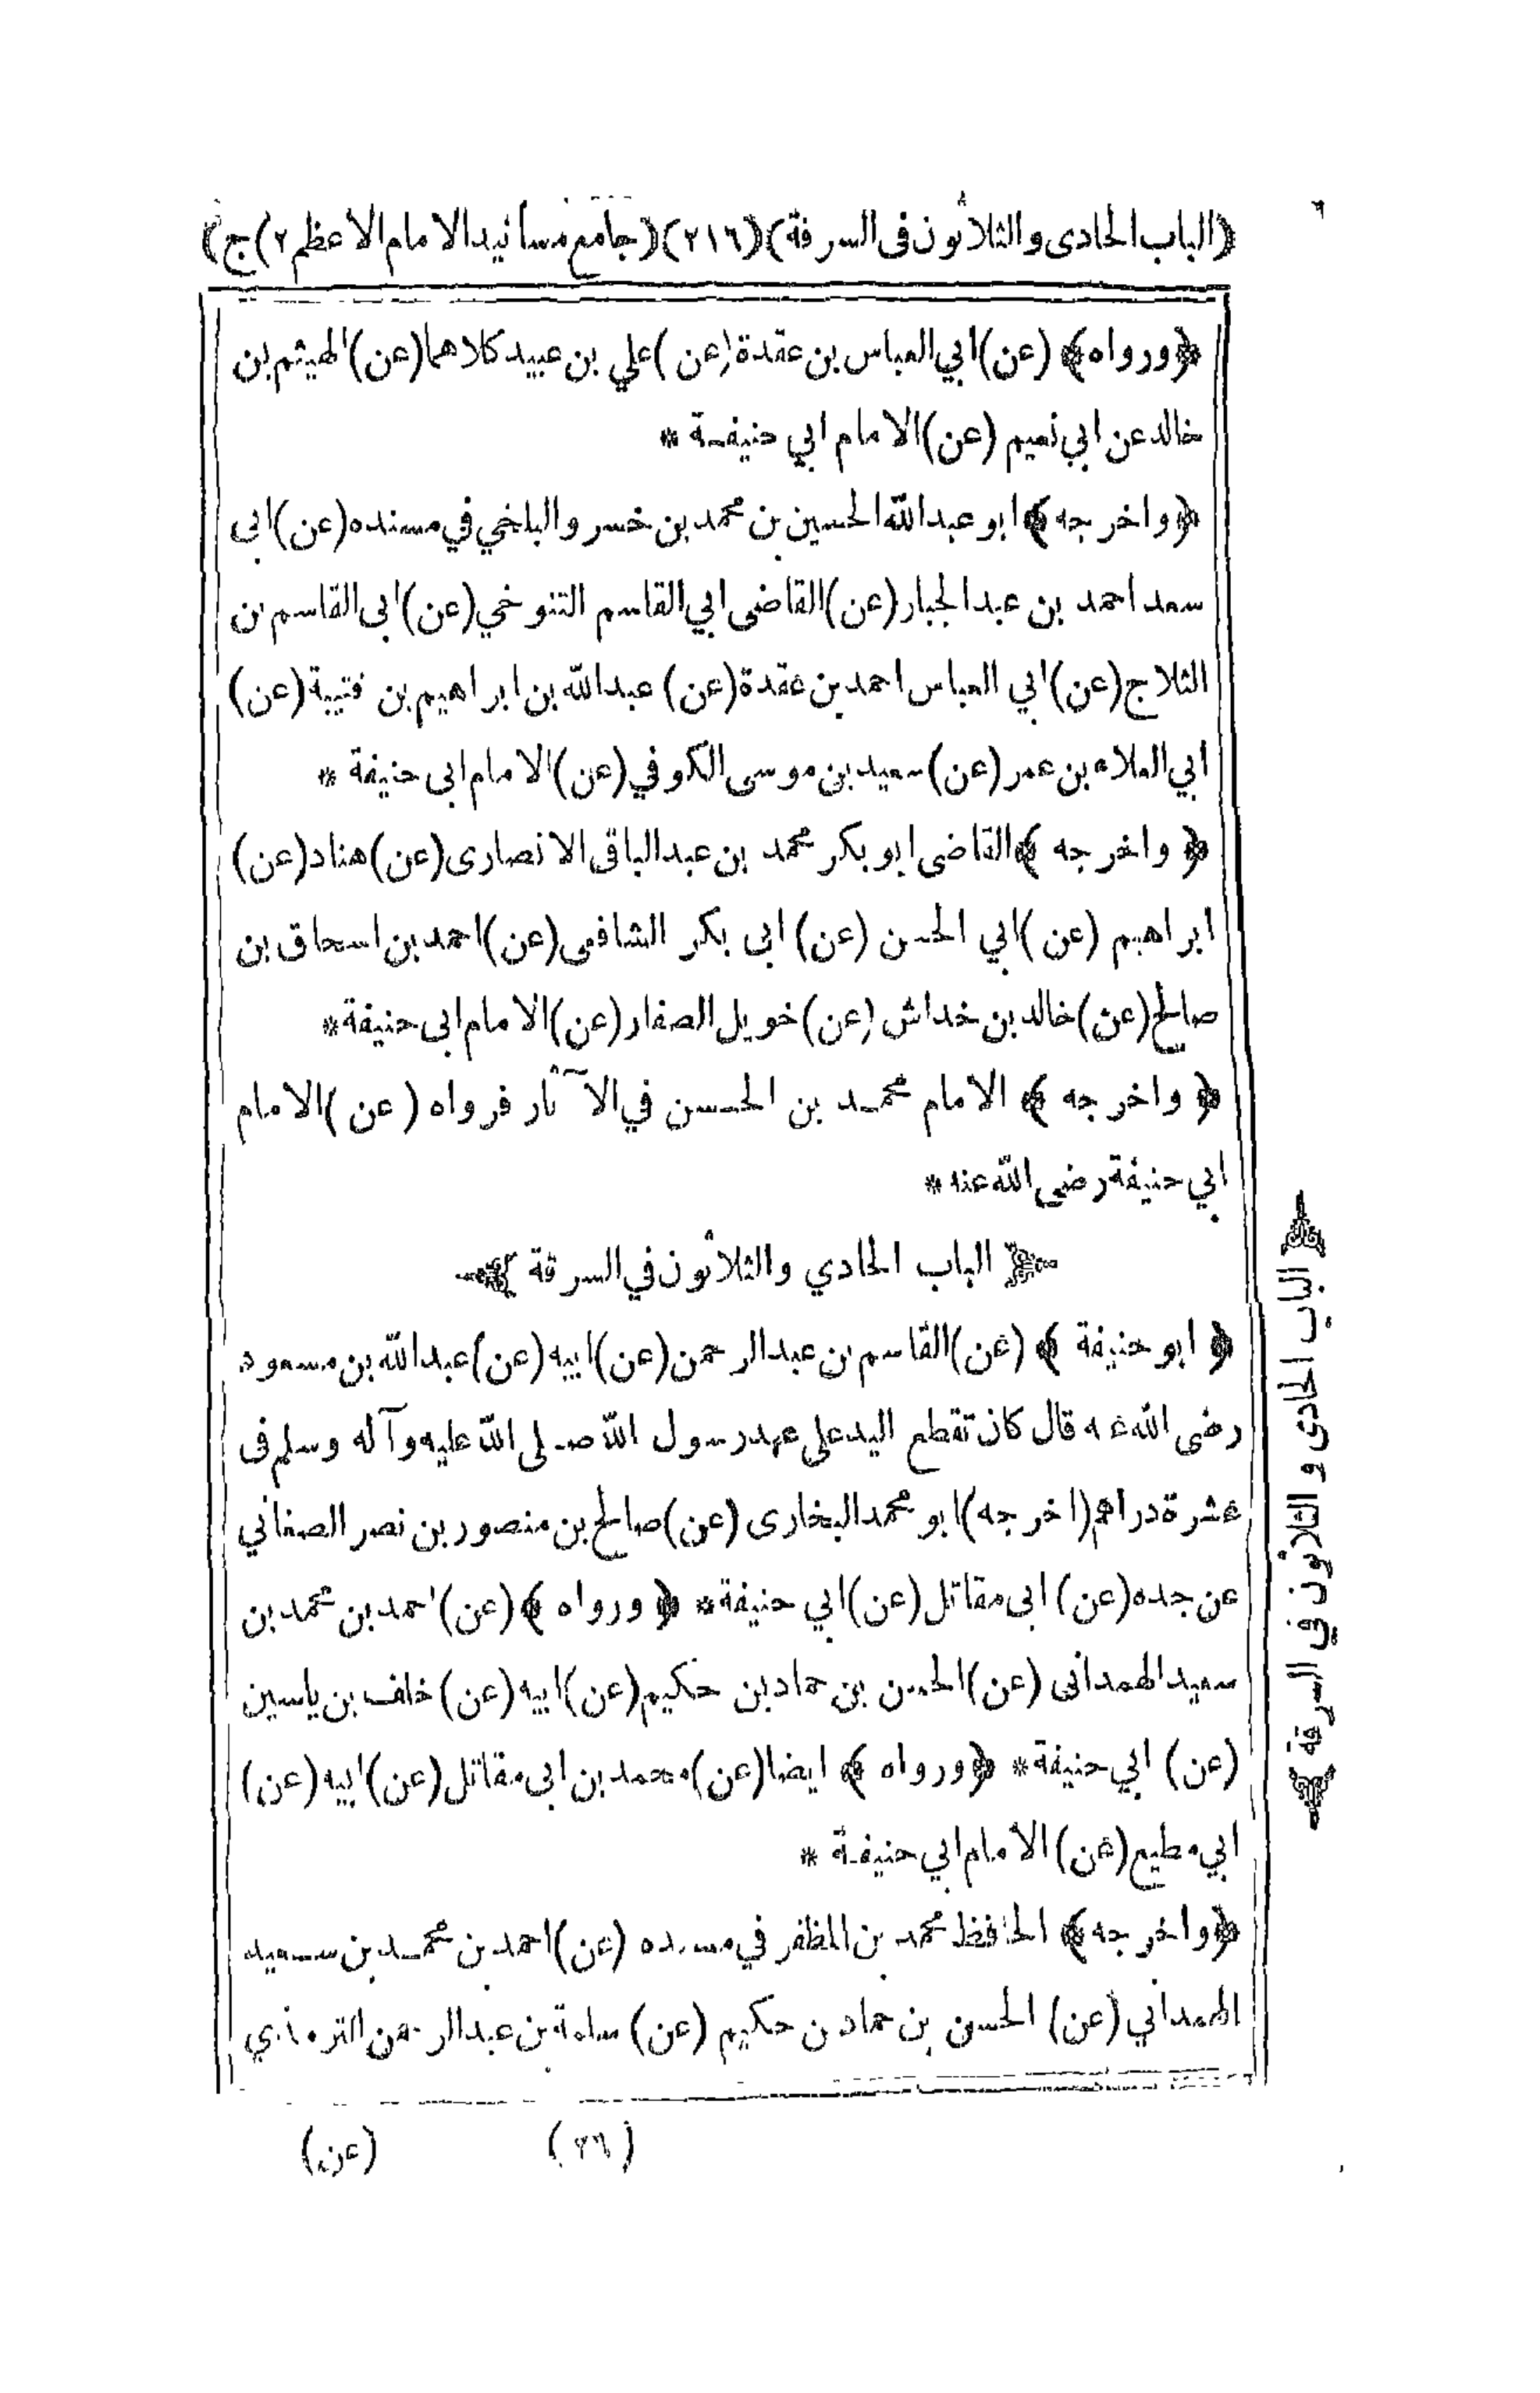 (الباب الحادى والثلاثون فى السرقة) (٢١٦) (جامع مسانيد الامام الاعظم ٢) ج)
﴿ورواه﴾ (عن) ابي العباس بن عقدة (عن) علي بن عبيد كلاهما (عن) الهيثم بن
خالد عن ابي نعيم (عن) الامام ابي حنيفة *
﴿واخرجه﴾ ابو عبدالله الحسين بن محمد بن خسرو البلخي في مسنده (عن) ابى
سعد احمد بن عبدالجبار (عن) القاضى ابي القاسم التنوخي (عن) ابى القاسم بن
الثلاج (عن) ابي العباس احمد بن عقدة (عن) عبدالله بن ابراهيم بن قتيبة (عن)
ابي العلاء بن عمر (عن) سعيد بن موسى الكوفي (عن) الامام ابى حنيفة *
﴿واخرجه﴾ القاضى ابو بكر محمد بن عبدالباقى الانصارى (عن) هناد (عن)
ابراهيم (عن) ابي الحسن (عن) ابى بكر الشافعى (عن) احمد بن اسحاق بن
صالح (عن) خالد بن خداش (عن) خويل الصفار (عن) الامام ابى حنيفة *
﴿واخرجه﴾ الامام محمد بن الحسن في الآثار فرواه (عن) الامام
ابي حنيفة رضى الله عنه *
الباب الحادي والثلاثون في السرقة
﴿ابو حنيفة﴾ (عن) القاسم بن عبدالرحمن (عن) ابيه (عن) عبدالله بن مسعود
رضى الله عنه قال كان تقطع اليد على عهد رسول الله صلى الله عليه وآله وسلم فى
عشرة دراهم (اخرجه) ابو محمد البخارى (عن) صالح بن منصور بن نصر الصغاني
عن جده (عن) ابى مقاتل (عن) ابي حنيفة * ﴿ورواه﴾ (عن) احمد بن محمد بن
سعيد الهمدانى (عن) الحسن بن حماد بن حكيم (عن) ابيه (عن) خلف بن ياسين
(عن) ابي حنيفة * ﴿ورواه﴾ ايضا (عن) محمد بن ابى مقاتل (عن) ابيه (عن)
ابي مطيع (عن) الامام ابي حنيفة *
﴿واخرجه﴾ الحافظ محمد بن المظفر في مسنده (عن) احمد بن محمد بن سعيد
الهمداني (عن) الحسن بن حماد بن حكيم (عن) سلمة بن عبدالرحمن الترمذي
(٢٦) (عن)
الباب الحادى والثلاثون في السرقة